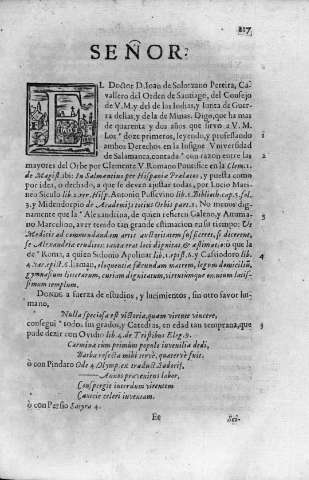 217
SEÑOR.
EL Doctor D. Ioan de Solorzano Pereira, Ca-
vallero del Orden de Santiago, del Consejo
de V.M. y del de las Indias, y Iunta de Guer-
ra dellas, y de la de Minas. Digo, que ha mas
de quarenta y dos años que sirvo a V. M.
Los doze primeros, leyendo, y professando
ambos Derechos en la Insigne Vniversidad
de Salamanca, contada con razon entre las
mayores del Orbe por Clemente V. Romano Pontifice en la Clem. 1.
de Magist. ibi: In Salmantino per Hispaniæ Prælatos, y puesta como
por idea, o dechado, a que se devan ajustar todas, por Lucio Mari-
neo Siculo lib. 2. rer. Hisp. Antonio Possevino lib. 1. Biblioth. cap. 5. fol.
3. y Midendorpio de Academijs totius Orbis part. 2. No menos dig-
namente que la Alexandrina, de quien refieren Galeno, y Ammia-
no Marcelino, aver tenido tan grande estimacion en su tiempo: Vt
Medicis ad commendandam artis auctoritatem sufficeret, si dicerent,
se Alexandriæ eruditos: tanta erat loci dignitas & æstimatio: o que la
de Roma, a quien Sidonio Apolinar lib. 1. epist. 6. y Casiodoro lib.
4. var. epist. 6. llaman, eloquentiæ fœcundam matrem, legum domicilium,
gymnasium litterarum, curiam dignitatum, virtutumque omnium latis-
simum templum.
DONDE a fuerza de estudios, y lucimientos, sin otro favor hu-
mano,
Nulla speciosa est victoria, quam virtute vincere,
consegui todos sus grados, y Catedras, en edad tan temprana, que
pude dezir con Ovidio lib. 4. de Tristibus Eleg. 9.
Carmina cum primùm populo iuvenilia dedi,
Barba resecta mihi bisvè, quatervè fuit.
ò con Pindaro Ode 4. Olymp. ex traduct.
Annos prævenitus labor,
Conspergit interdum virentem
Canitie celeri iuventam.
ò con Persio Satyra 4.
Ee
Sci-